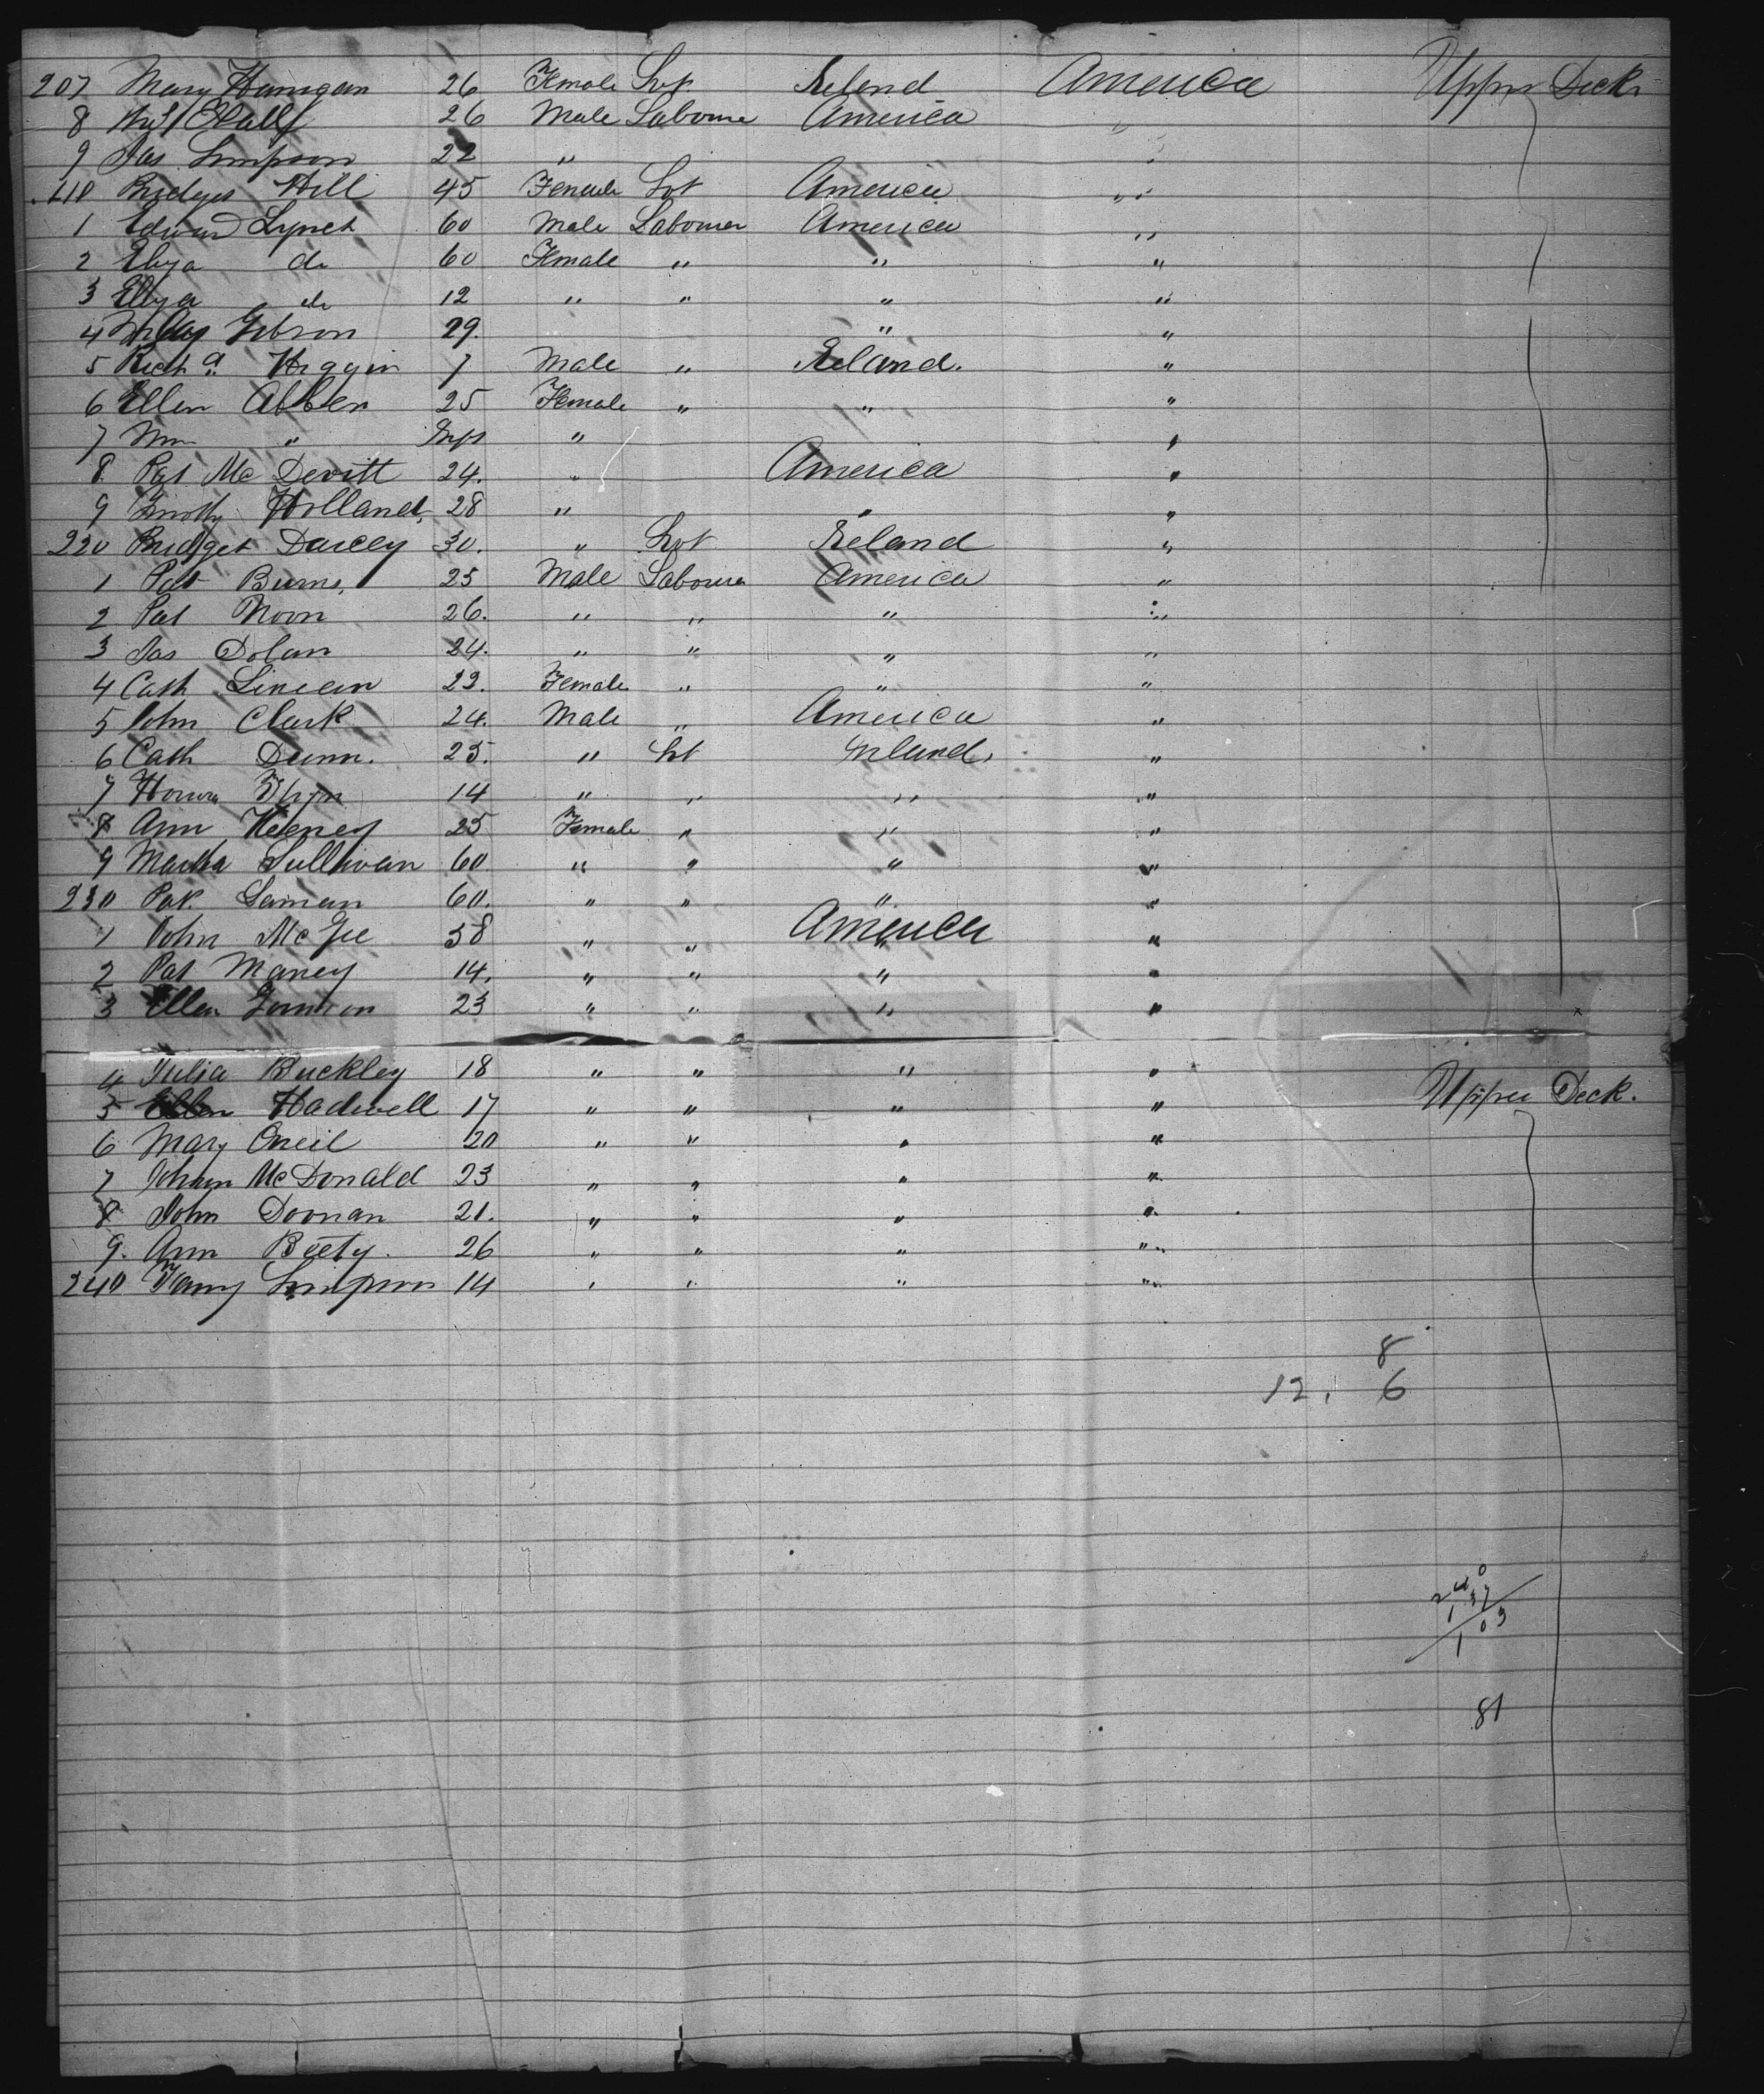 207 Mary Hanigan 26 Female Svt Ireland America Upper Deck
8 26 Male Labourer America "
9 Jas Simpson 22 " "
210 Bridget Hill 45 Female Svt America "
1 Edward Lynch 60 Male Labourer America "
2 Eliza do 60 Female " " "
3 Eliza do 12 " " " "
4 Gibson 29. " "
5 Richd. Higgin 7 Male " Ireland. "
6 Ellen Abben 25 Female " " "
7 Wm " Inft " "
8. Pat Mc Devitt 24. " America "
9 Timothy Holland, 28 " " "
220 Bridget Darcey 30. " Svt Ireland "
1 Pat Burns, 25 Male Labourer America "
2 Pat Noon 26. " " " "
3 Jas Dolan 24. " " " "
4 Cath 23. Female " " "
5 John Clark 24. Male " America "
6 Cath Dunn. 25. " Svt Ireland, "
7 Honora 14 " " " "
8 Ann Keeney 25 Female " " "
9 Martha Sullivan 60 " " " "
230 Pat. 60. " " " "
1 John McGee 38 " " America "
2 Pat Maney 14. " " " "
3 Ellen 23 " " " "
4 Julia Buckley 18 " " " "
5 Ellen Hadwell 17 " " " " Upper Deck.
6 Mary Oneil 20 " " " "
7 McDonald 23 " " " "
8 John Doonan 21. " " " "
9. Ann Beety. 26 " " " "
240 Fanny Simpson 14 " " " "
8
12. 6
240
137
103
81